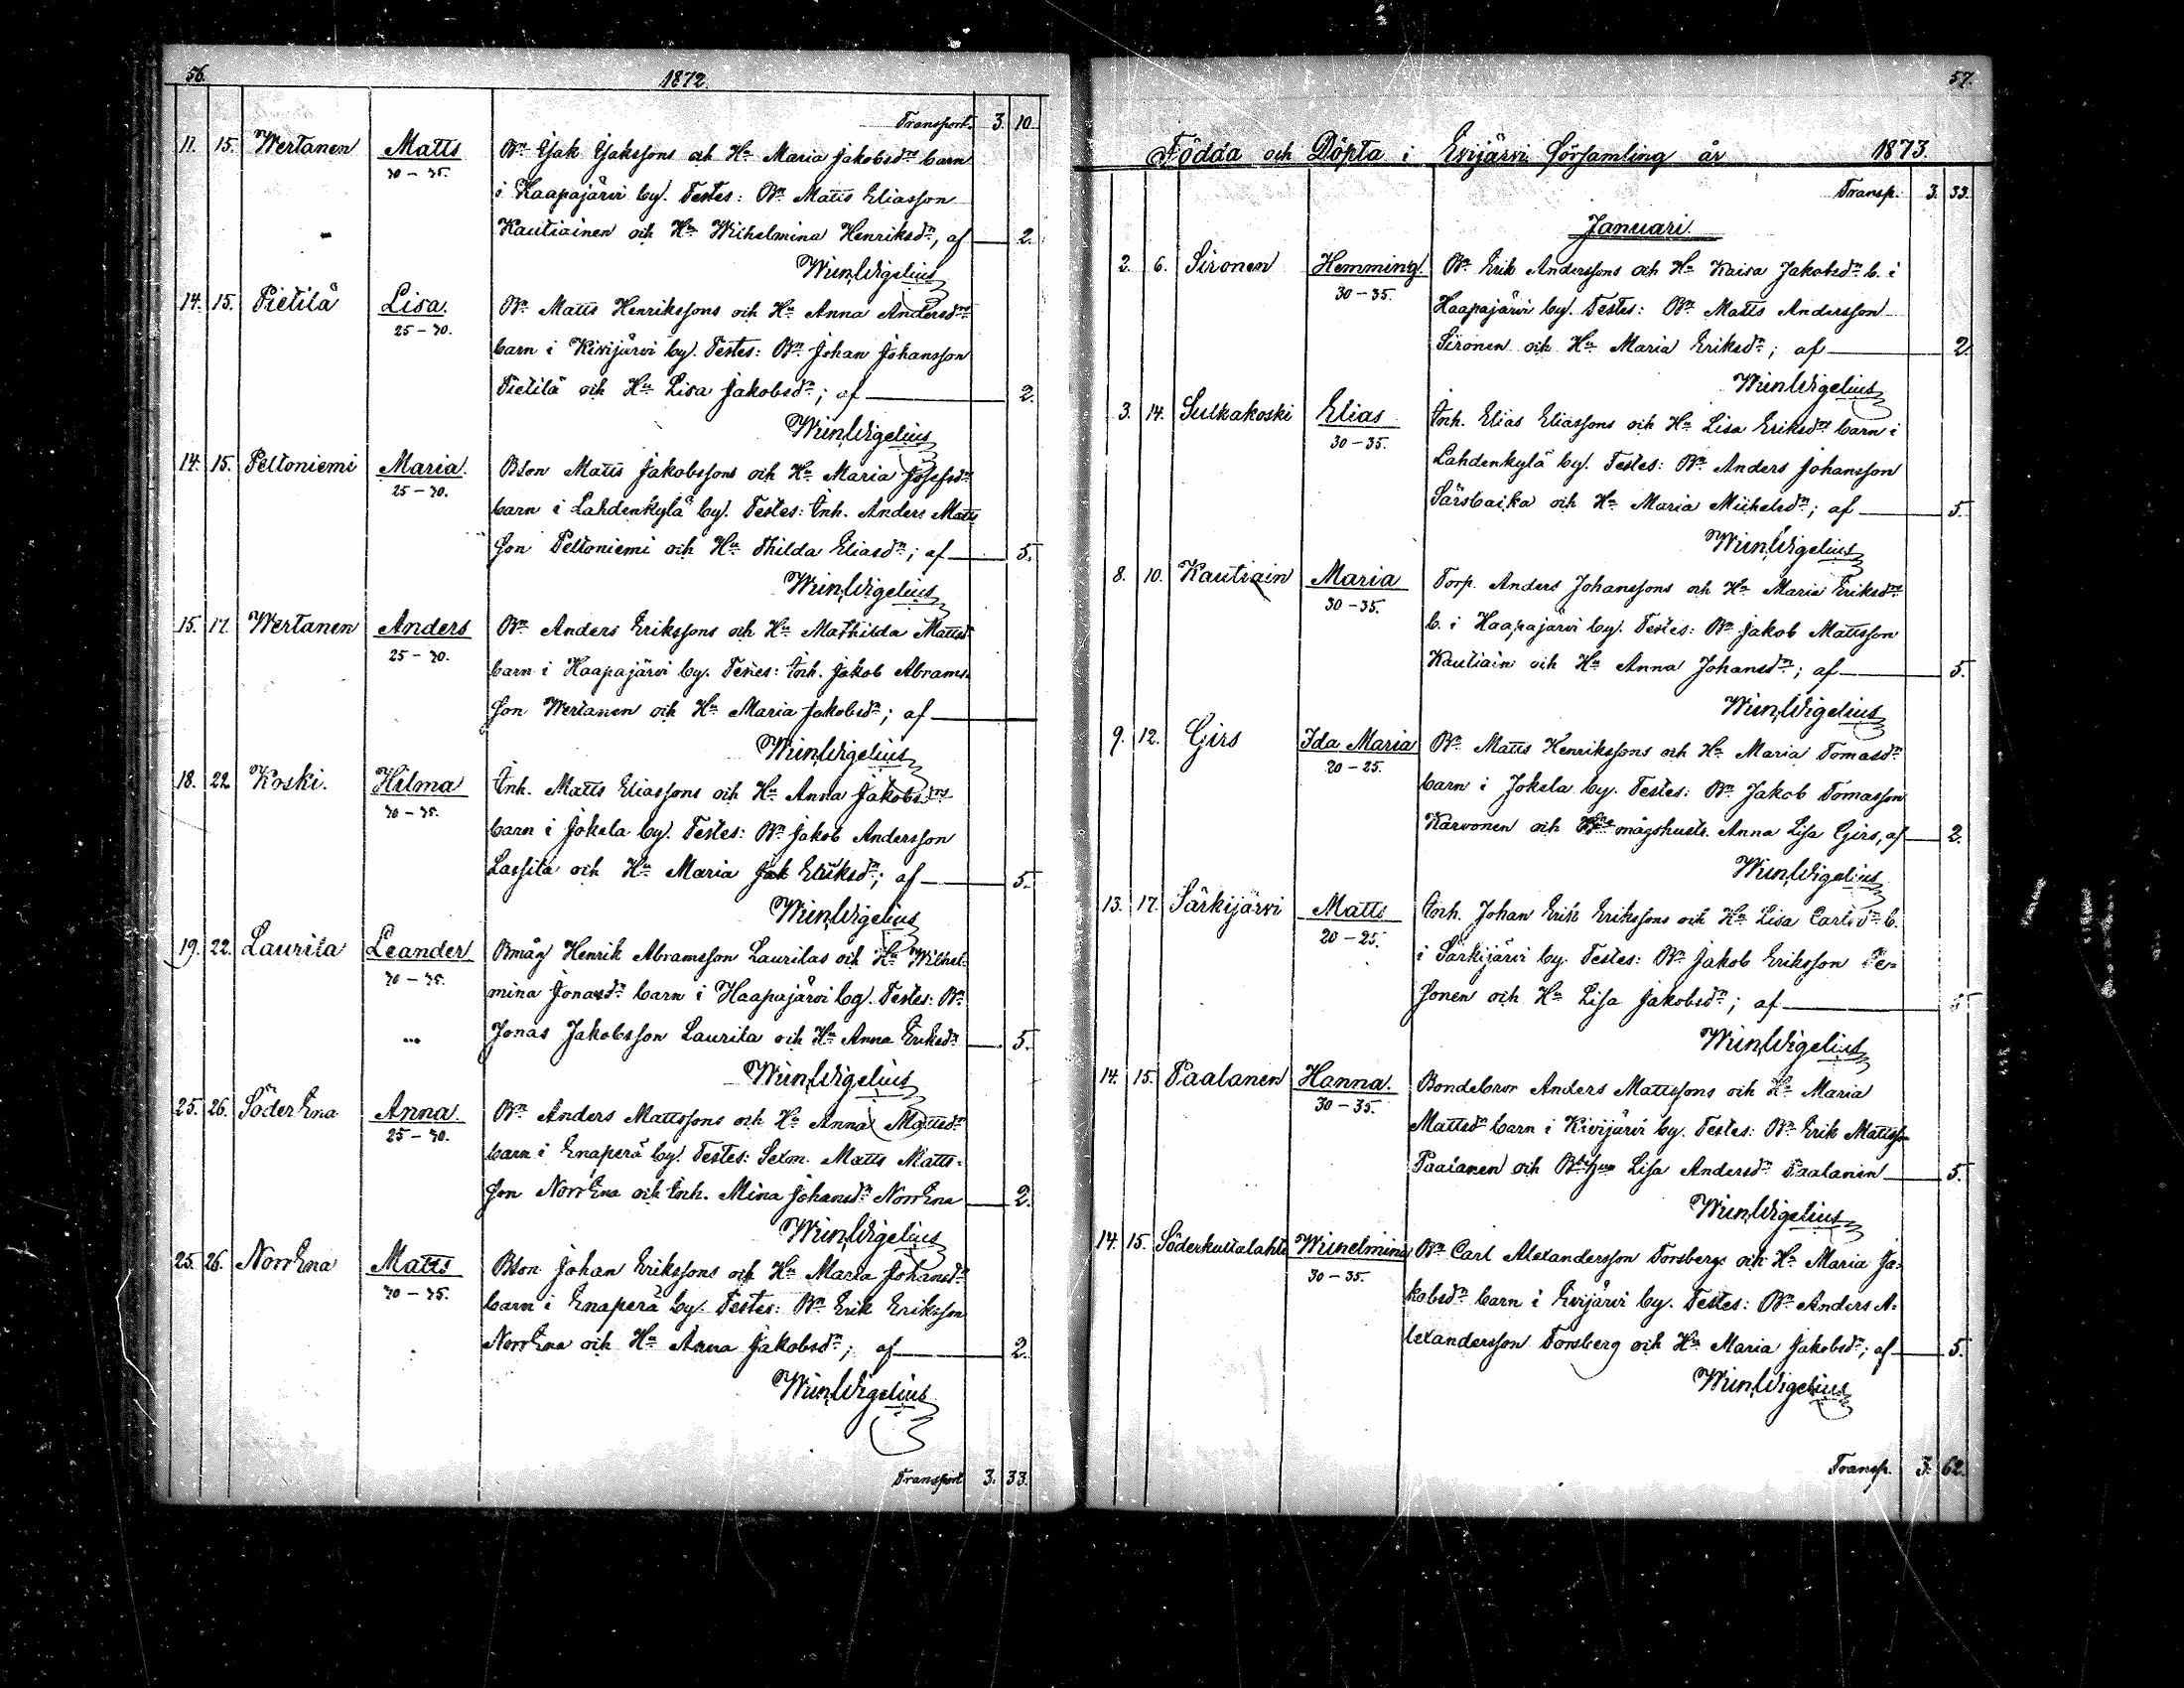 56.
1872.
Transport. 3. 10.
11. 15. Wertanen Matts Bn. Isak Isakssons och Hu Maria Jakobsdrs barn
30–35. i Haapajärvi by. Testes: Bn. Matts Eliasson
Kautiainen och Hu Wilhelmina Henriksdr, af 2.
Wigelius
14. 15. Pietilä Lisa. Bn. Matts Henrikssons och Hu Anna Andersdrs
25–30. barn i Kivijärvi by. Testes: Bn. Johan Johansson
Pietilä och Hu Lisa Jakobsdr; af 2.
Wigelius
14. 15. Peltoniemi Maria. Bson Matts Jakobssons och Hu Maria Josefsdrs
25–30. barn i Lahdenkylä by. Testes: Inh. Anders Matts
son Peltoniemi och Hu Thilda Eliasdr; af 5.
Wigelius
15. 17. Wertanen Anders Bn. Anders Erikssons och Hu Mathilda Mattsd
25–30. barn i Haapajärvi by. Testes: Inh. Jakob Abrams-
son Wertanen och Hu Maria Jakobsdr; af
Wigelius
18. 22. Koski. Hilma Inh. Matts Eliassons och Hu Anna Jakobsdrs
30–35. barn i Jokela by. Testes: Bn. Jakob Andersson
Lassila och Hu Maria Jak Eriksdr; af 5.
Wigelius
19. 22. Laurila Leander Bmåg Henrik Abramsson Laurilas och Hu Wilhel-
30–35. mina Jonasdrs barn i Haapajärvi by. Testes: Bn.
Jonas Jakobsson Laurila och Hu Anna Eriksdr 5.
Wigelius
25. 26. SöderEna Anna. Bn. Anders Mattssons och Hu Anna Mattsdrs
25–30. barn i Enaperä by. Testes: Sexm. Matts Matts-
son NorrEna och Inh. Mina Johansdr NorrEna 2.
Wigelius
25. 26. NorrEna Matts Bson Johan Erikssons och Hu Maria Johansdrs
30–35. barn i Enaperä by. Testes: Bn. Erik Eriksson
NorrEna och Hu Anna Jakobsdr; af 2.
Wigelius
Transport 3. 33.
57.
Födda och Döpta i Evijärvi församling år 1873.
Transp. 3. 33.
Januari.
2. 6. Sironen Hemming. Bn. Erik Anderssons och Hu Kaisa Jakobsdrs b. i
30–35. Haapajärvi by. Testes: Bn. Matts Andersson
Sironen och Hu Maria Eriksdr; af 2.
Wigelius
3. 14. Sulkakoski Elias Inh. Elias Eliassons och Hu Lisa Eriksdrs barn i
30–35. Lahdenkylä by. Testes: Bn. Anders Johansson
Särsbacka och Hu Maria Michelsdr; af 5.
Wigelius
8. 10. Kautiain Maria Torp. Anders Johanssons och Hu Maria Eriksdrs
30–35. b. i Haapajärvi by. Testes: Bn. Jakob Mattsson
Kautiain och Hu Anna Johansdr; af 5.
Wigelius
9. 12. Girs Ida Maria Bn. Matts Henrikssons och Hu Maria Tomasdrs
20–25. barn i Jokela by. Testes: Bn. Jakob Tomasson
Karvonen och mågshustr. Anna Lisa Girs, af 2.
Wigelius
13. 17. Särkijärvi Matts Inh. Johan Erik Erikssons och Hu Lisa Carlsdrs b.
20–25. i Särkijärvi by. Testes: Bn. Jakob Eriksson Pe-
sonen och Hu Lisa Jakobsdr; af 5.
Wigelius
14. 15. Paalanen Hanna. Bondebror Anders Mattssons och Hu Maria
30–35. Mattsdrs barn i Kivijärvi by. Testes: Bn. Erik Mattsson
Paalanen och Lisa Andersdr Paalanen 5.
Wigelius
14. 15. Söderkultalahti Wilhelmina Bn. Carl Alexandersson Forsbergs och Hu Maria Ja-
30–35. kobsdrs barn i Evijärvi by. Testes: Bn. Anders A-
lexandersson Forsberg och Hu Maria Jakobsdr; af 5.
Wigelius
Transp. 3. 62.